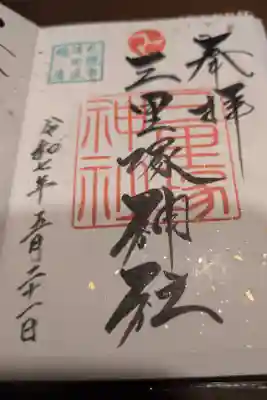 奉拝
三里塚神社
三里塚
神社
令和七年五月二十一日